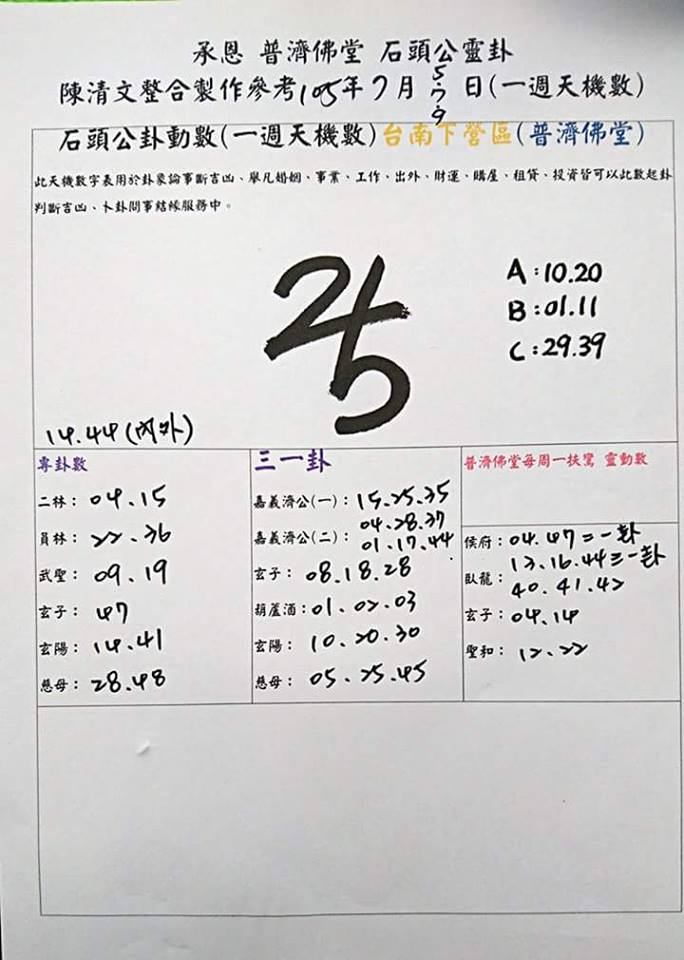 承恩 普濟佛堂 石頭公靈卦
陳清文整合製作參考105年7月5.7.9日(一週天機數)
石頭公卦動數(一週天機數)台南下營區(普濟佛堂)
此天機數字表用於卦象論事斷吉凶、舉凡婚姻、事業、工作、出外、財運、購屋、租賃、投資皆可以此數起卦
判斷吉凶、卜卦問事結緣服務中。
A:10.20
B:01.11
C:29.39
14.44(內外)
專卦數
二林: 04.15
員林: 22.36
武聖: 09.19
玄子: 47
玄陽: 14.41
慈母: 28.48
三一卦
嘉義濟公(一): 15.25.35
嘉義濟公(二): 04.28.37
01.17.44
玄子: 08.18.28
葫蘆酒: 01.02.03
玄陽: 10.20.30
慈母: 05.25.45
普濟佛堂每周一扶鸞 靈動數
侯府: 04.47=一卦
臥龍: 13.16.44=一卦
40.41.42
玄子: 04.14
聖和: 12.22